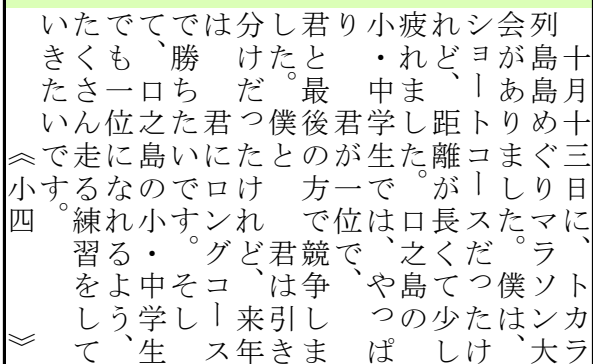 十月十三日に、トカラ
列島島めぐりマラソン大
会がありました。僕は、
ショートコースだったけ
れど、距離が長くて少し
疲れました。口之島の
小・中学生では、やっぱ
り　君が一位で、
君と最後の方で競争しま
した。僕と　君は引き
分けだったけれど、来年
は　君にロングコース
で勝ちたいです。そし
て、口之島の小・中学生
でも一位になれるよう、
たくさん走る練習をして
いきたいです。
《小四　　　》